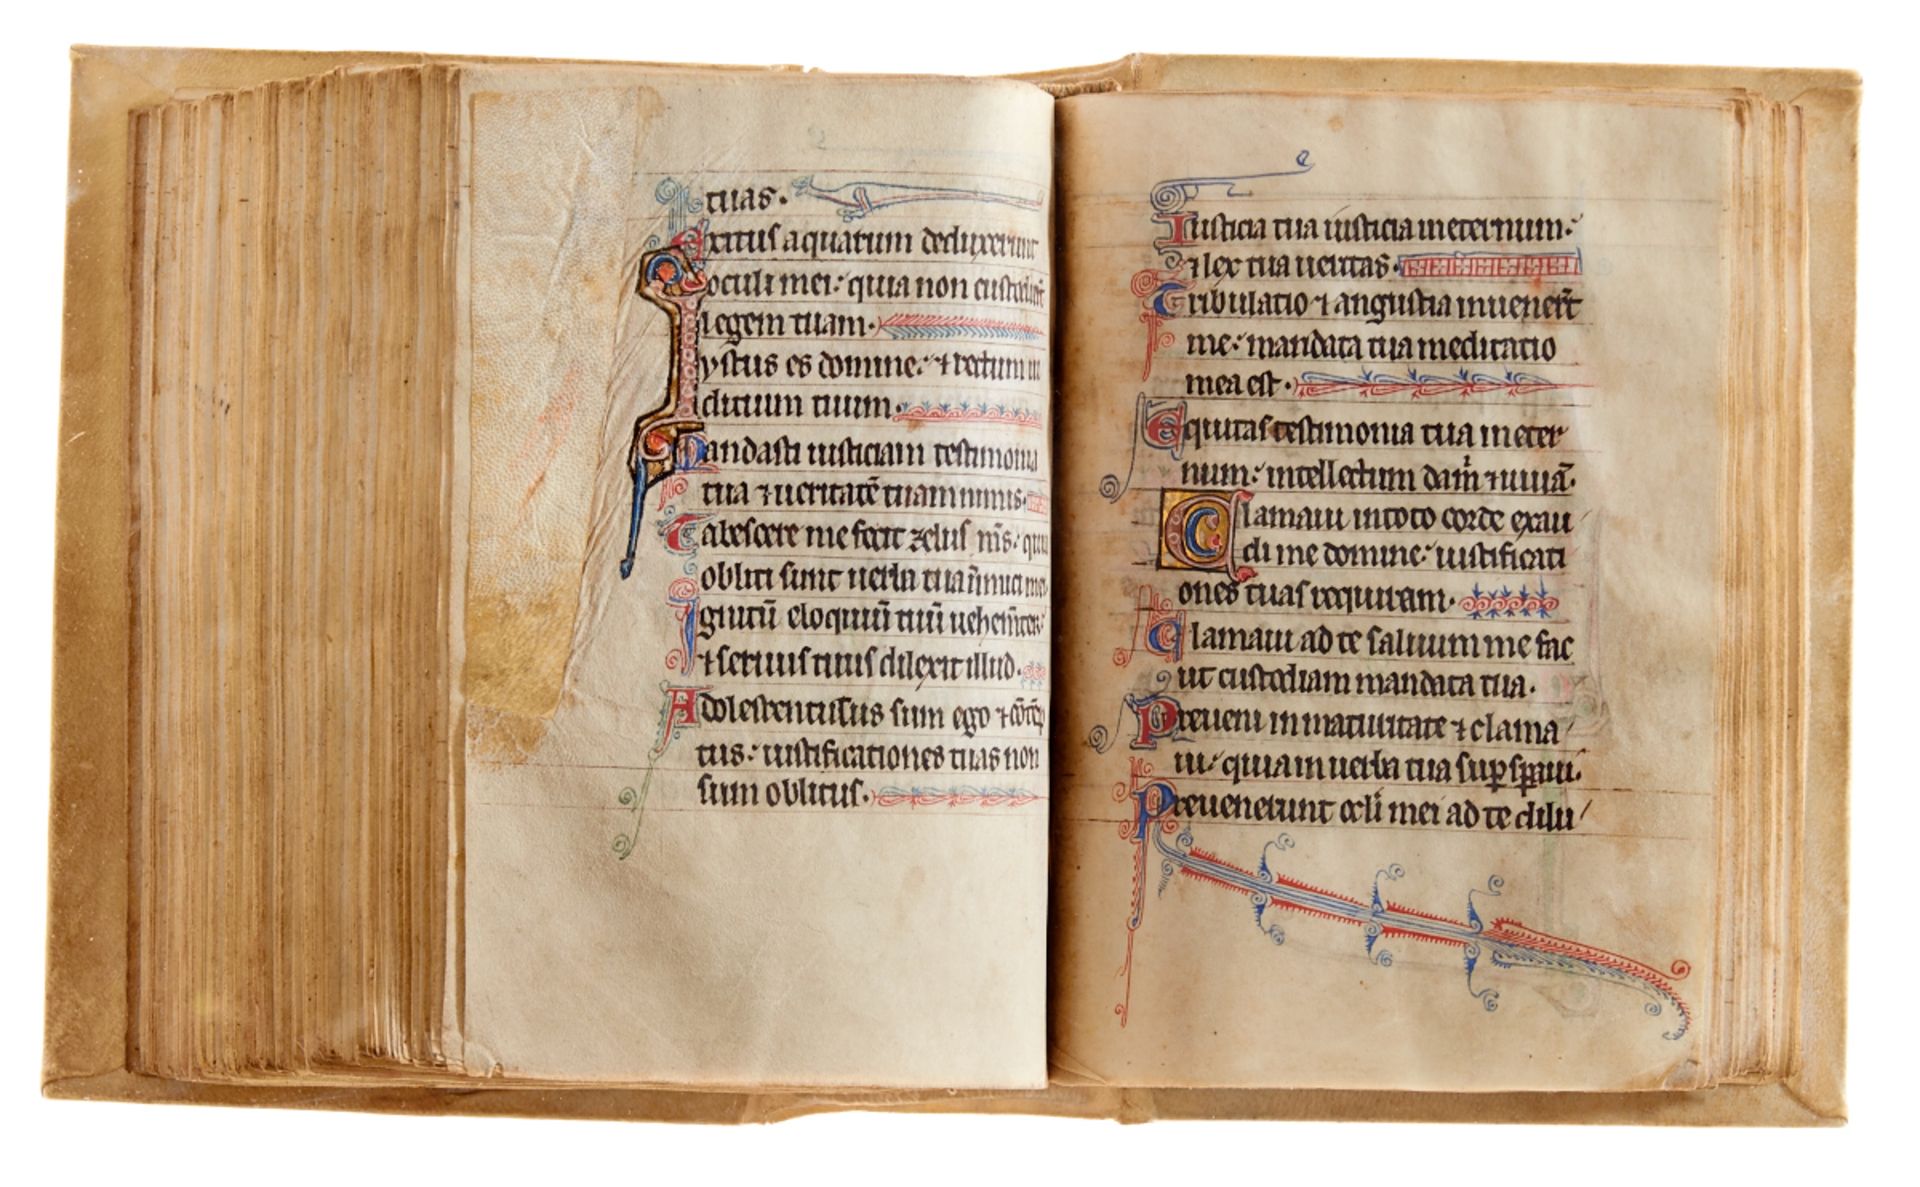 tuas.
Exitus aquarum deduxerunt
oculi mei: quia non custodierūt
legem tuam.
Iystus es domine: ⁊ rectum iu
dicium tuum.
Mandasti iusticiam testimonia
tua ⁊ ueritatē tuam nimis.
Tabescere me fecit zelus m̄s: quia
obliti sunt uerba tua inimici mei
Ignitū eloquiū tuū uehem̄ter:
⁊ seruus tuus dilexit illud.
Adolescentulus sum ego ⁊ cōtēp
tus: iustificationes tuas non
sum oblitus.
Iusticia tua iusticia in eternum:
⁊ lex tua ueritas.
Tribulatio ⁊ angustia inuener̄t
me: mandata tua meditatio
mea est.
Equitas testimonia tua in eter
num: intellectum dam̄ ⁊ uiuā.
Clamaui in toto corde exau
di me domine: iustificati
ones tuas requiram.
Clamaui ad te saluum me fac
ut custodiam mandata tua.
Preueni in maturitate ⁊ clama
ui: quia in uerba tua suꝑ sꝑaui.
Preuenerunt ocl̄i mei ad te dilu